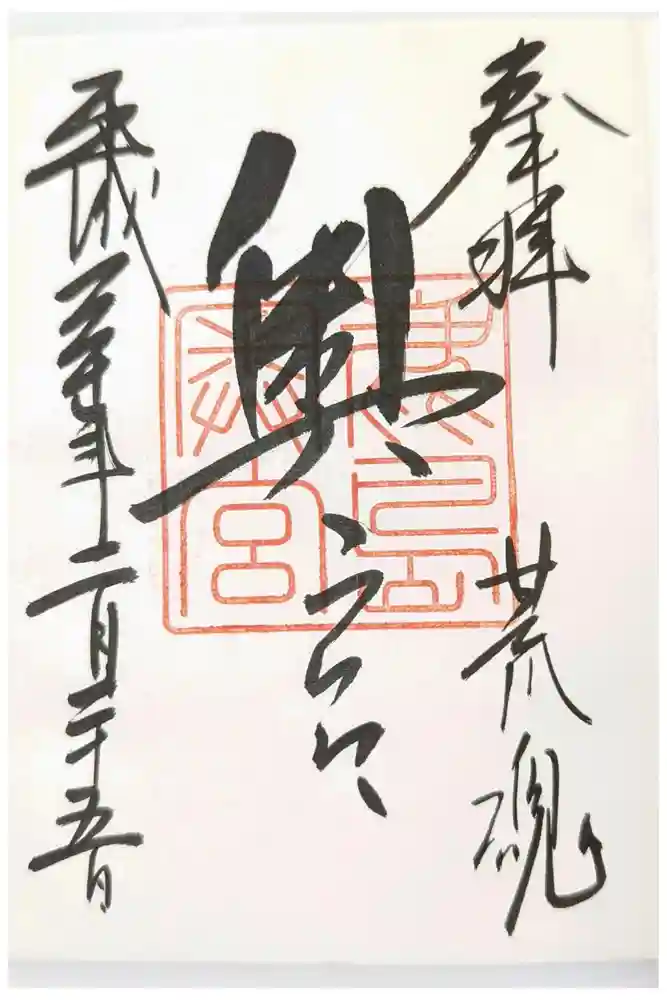 奉拝
荒魂
奥宮
平成三十年二月二十五日
鹿島
奥宮